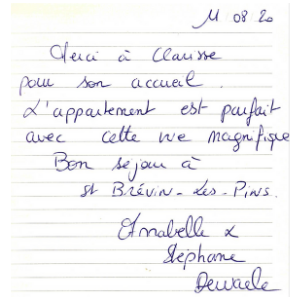 11 08 20
Merci à Clarisse
pour son accueil.
L'appartement est parfait
avec cette vue magnifique
Bon séjour à
St BRÉVIN-Les-PINS.
Annabelle &
Stéphane
Dewaele